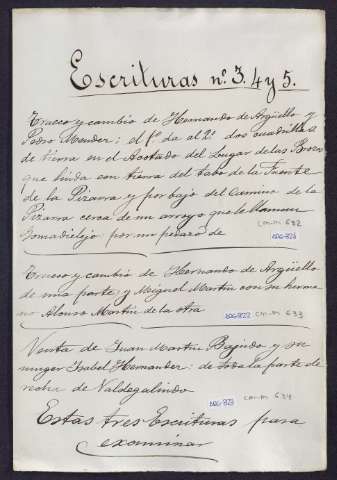 Escrituras nº. 3. 4 y 5.
Trueco y cambio de Hernando de Argüello y
Pedro Mender; el 1º da al 2º dos cuadrillas
de tierra en el Acotado del Lugar de las Brozas
que linda con tierra del Cabo de la Fuente
de la Pizarra y por bajo del Camino de la
Pizarra cerca de un arroyo que le llaman
por un pedazo de
Trueco y cambio de Hernando de Argüello
de una parte y Miguel Martín con su herma
no Alonso Martín de la otra
Venta de Juan Martín y su
muger Isabel Hernander: de toda la parte de
de Valdegalindo
Estas tres Escrituras para
examinar